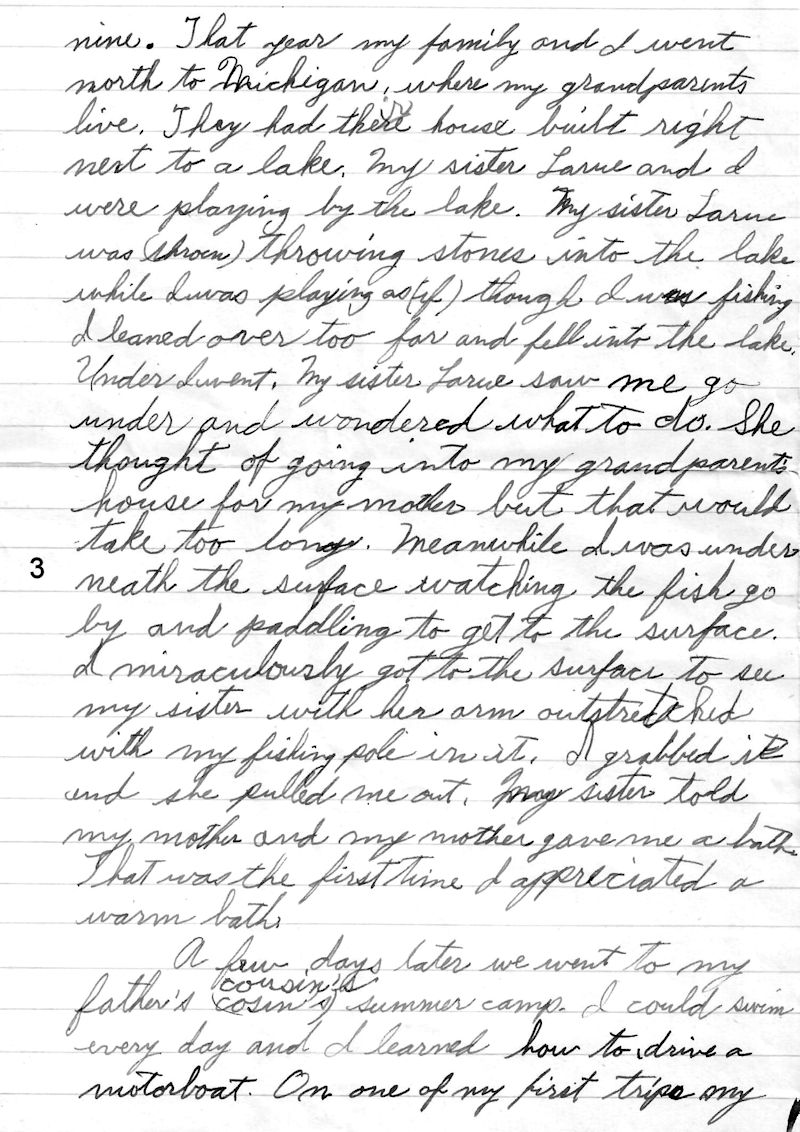 nine. That year my family and I went
north to Michigan, where my grandparents
live. They had their house built right
next to a lake. My sister Larue and I
were playing by the lake. My sister Larue
was (throen) throwing stones into the lake
while I was playing as (if) though I was fishing
I leaned over too far and fell into the lake.
Under I went. My sister Larue saw me go
under and wondered what to do. She
thought of going into my grandparents
house for my mother but that would
take too long. Meanwhile I was under
3
neath the surface watching the fish go
by and paddling to get to the surface.
I miraculously got to the surface to see
my sister with her arm outstretched
with my fishing pole in it. I grabbed it
and she pulled me out. My sister told
my mother and my mother gave me a bath.
That was the first time I appreciated a
warm bath.
A few days later we went to my
cousin's
father's (cosin's) summer camp. I could swim
every day and I learned how to drive a
motorboat. On one of my first trips my